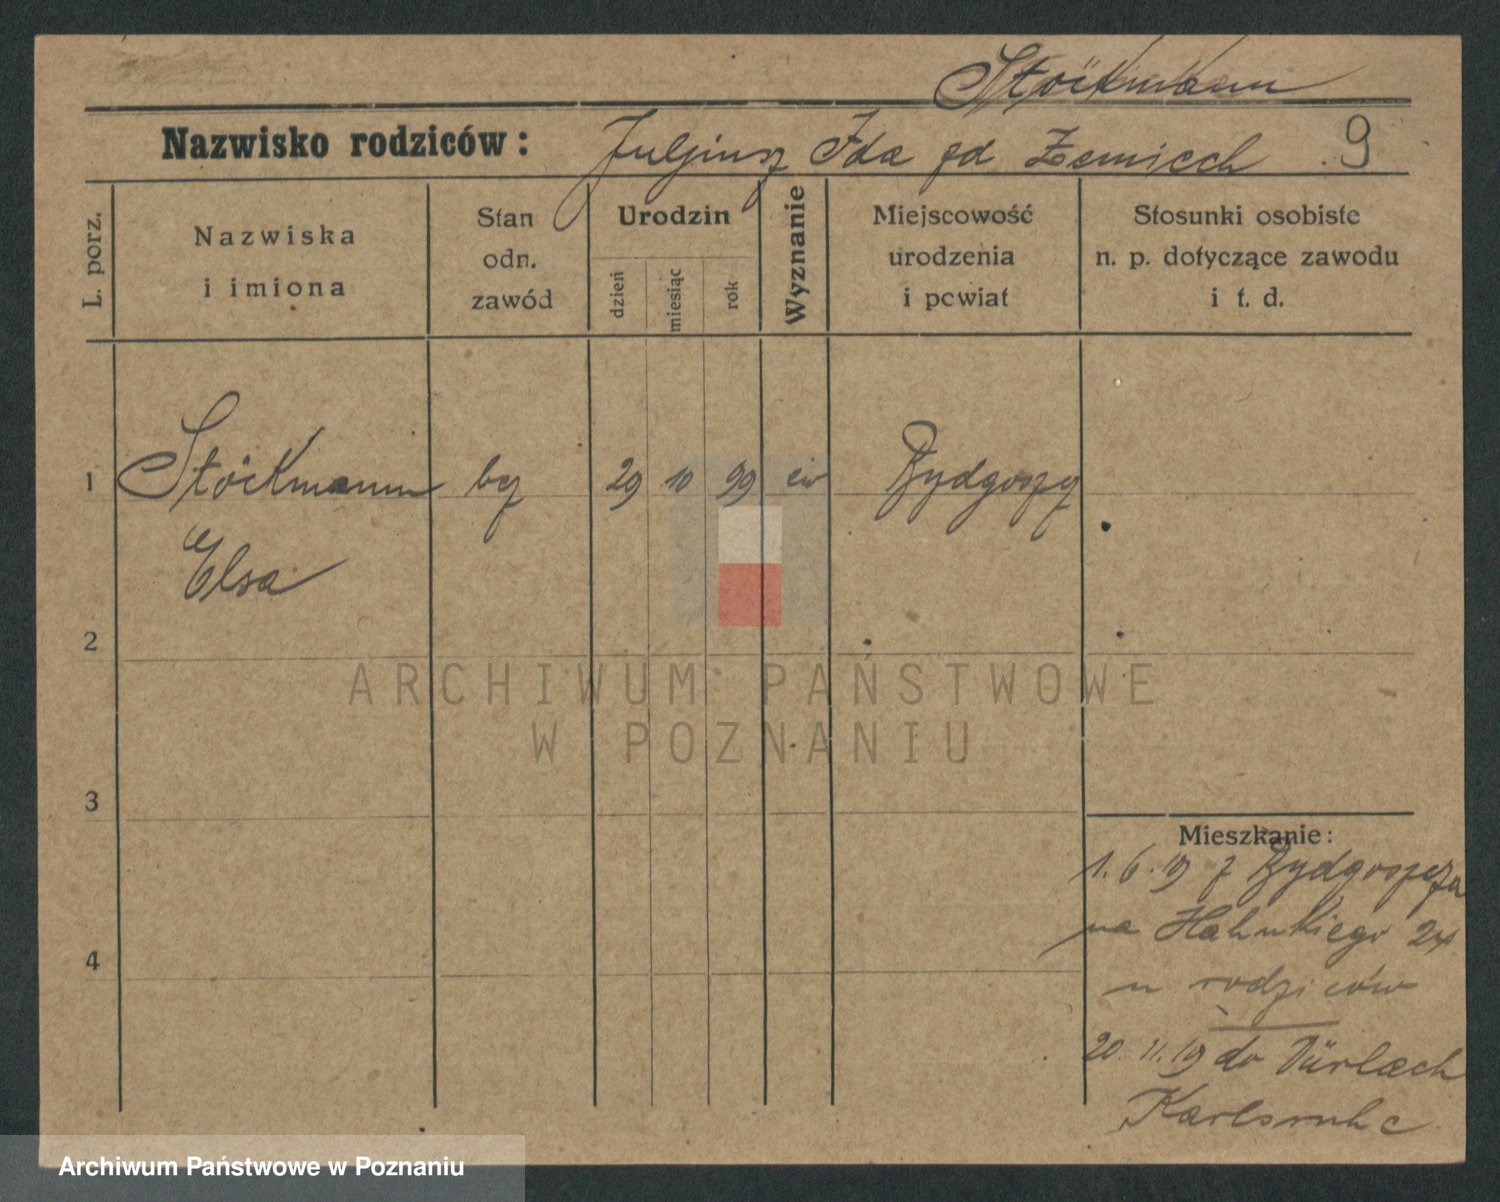 Stöckmann
Nazwisko rodziców: Juljusz Ida gd 9
L. porz.
Nazwiska
i imiona
Stan
odn.
zawód
Urodzin
dzień
miesiąc
rok
Wyznanie
Miejscowość
urodzenia
i powiat
Stosunki osobiste
n. p. dotyczące zawodu
i t. d.
1 Stöckmann 29 10 99 ew Bydgoszcz
Elsa
2
ARCHIWUM PAŃSTWOWE
W POZNANIU
3
Mieszkanie:
1.6.19 z Bydgoszcza
na 24
4
u rodziców
20.11.19 do Dürlach
Karlsruhe
Archiwum Państwowe w Poznaniu